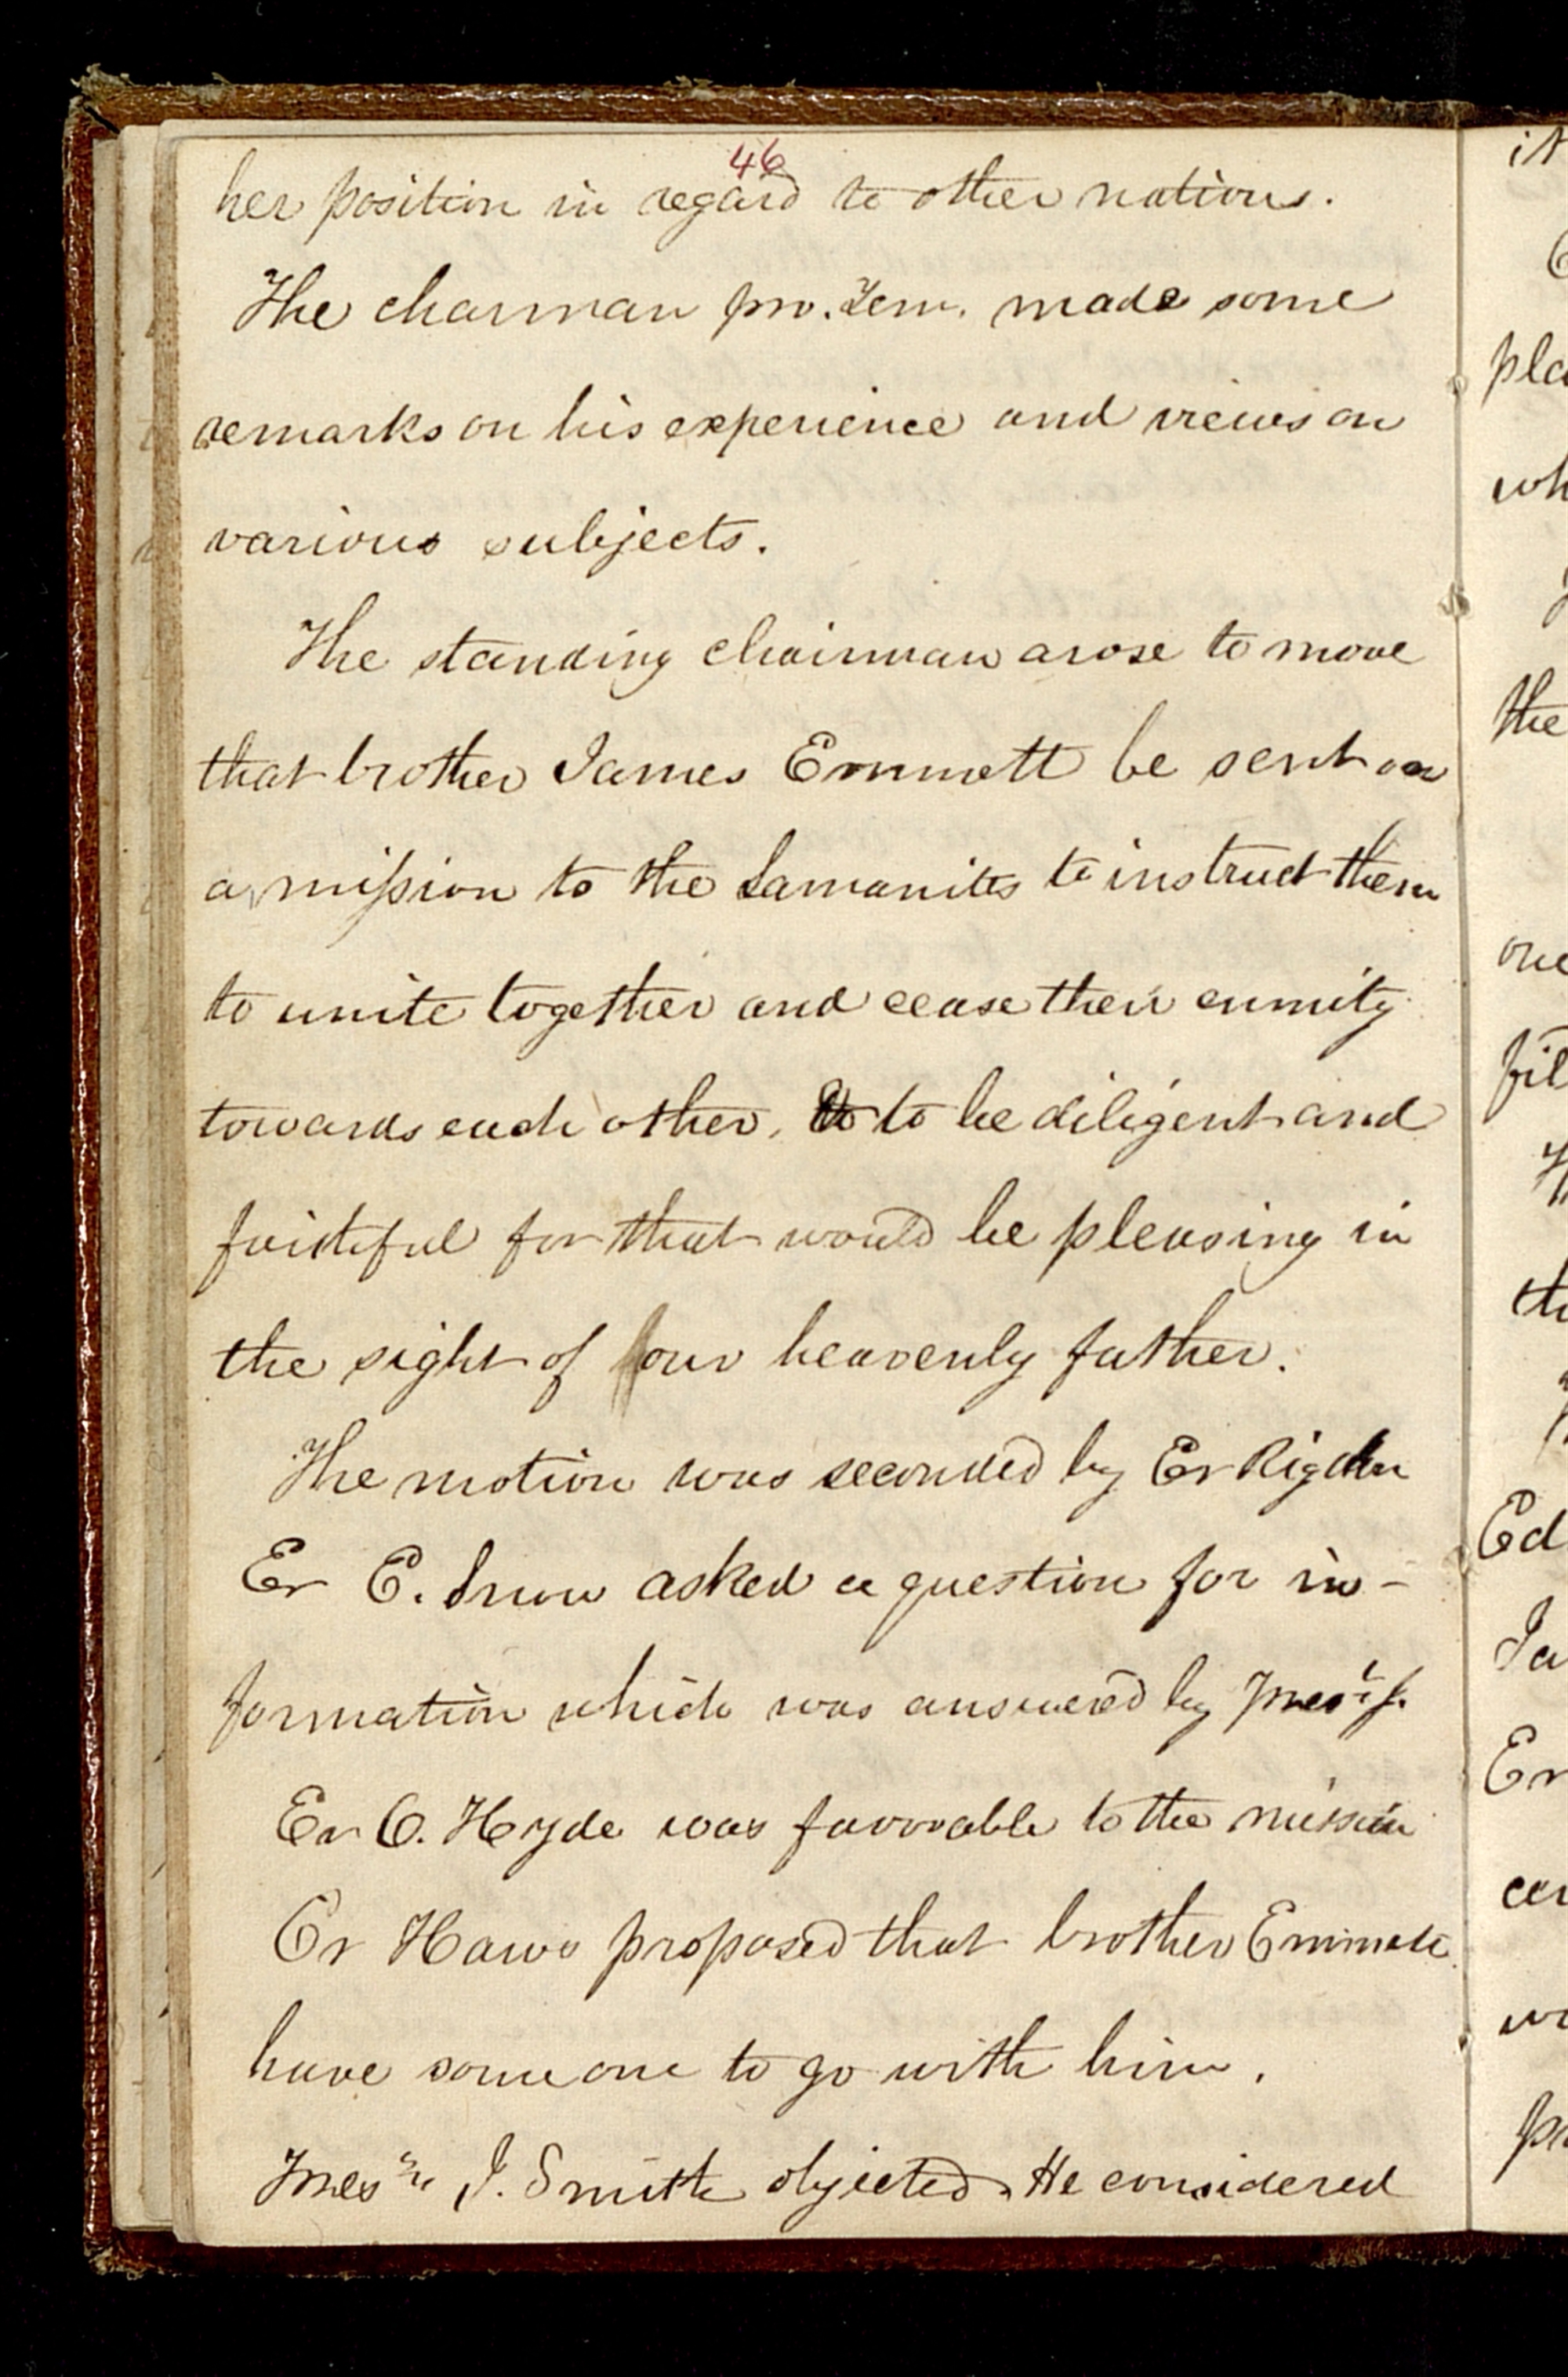 46
her position in regard to other nations.
The charman pro. tem. made some
remarks on his experience and views on
various subjects.
The standing chairman arose to move
that brother James Emmett be sent on
a mission to the Lamanites to instruct them
to unite together and cease their enmity
towards each other, to be diligent and
faithful for that would be pleasing in
the sight of our heavenly father.
The motion was seconded by Er Rigdon
Er E. Snow asked a question for in-
formation which was answered by
Er O. Hyde was favorable to the mission
Er Haws proposed that brother Emmett
have some one to go with him.
J. Smith objected. He considered
it
pla
wh
the
one
fil
Ed
Ja
Er